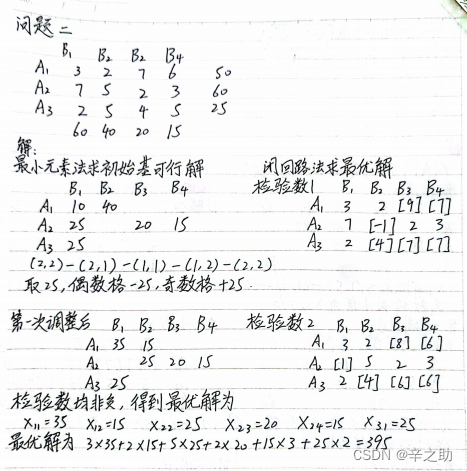 问题二
B₁ B₂ B₂ B₄
A₁ 3 2 7 6 50
A₂ 7 5 2 3 60
A₃ 2 5 4 5 25
60 40 20 15
解:
最小元素法求初始基可行解
B₁ B₂ B₃ B₄
A₁ 10 40
A₂ 25 20 15
A₃ 25
(2,2)-(2,1)-(1,1)-(1,2)-(2,2)
取25,偶数格-25,奇数格+25.
闭回路法求最优解
检验数1 B₁ B₂ B₃ B₄
A₁ 3 2 [9] [7]
A₂ 7 [-1] 2 3
A₃ 2 [4] [7] [7]
第一次调整后 B₁ B₂ B₃ B₄
A₁ 35 15
A₂ 25 20 15
A₃ 25
检验数2 B₁ B₂ B₃ B₄
A₁ 3 2 [8] [6]
A₂ [1] 5 2 3
A₃ 2 [4] [6] [6]
检验数均非负,得到最优解为
X₁₁=35 X₁₂=15 X₂₂=25 X₂₃=20 X₂₄=15 X₃₁=25
最优解为 3×35+2×15+5×25+2×20+15×3+25×2=395
CSDN @辛之